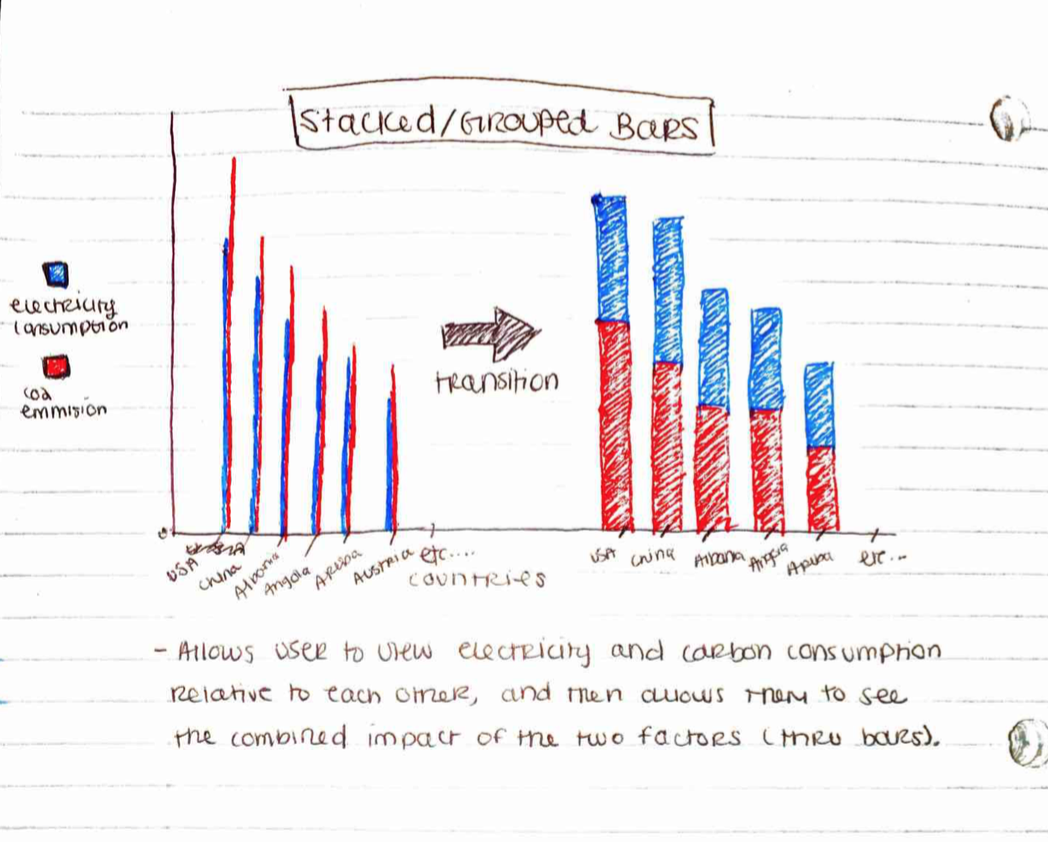 Stacked/Grouped Bars
electricity
consumption
co2
emmision
transition
USA
China
Albania
Angola
Aruba
Austria
etc....
countries
USA
China
Albania
Angola
Aruba
etc...
- Allows user to view electricity and carbon consumption
relative to each other, and then allows them to see
the combined impact of the two factors (thru bars).